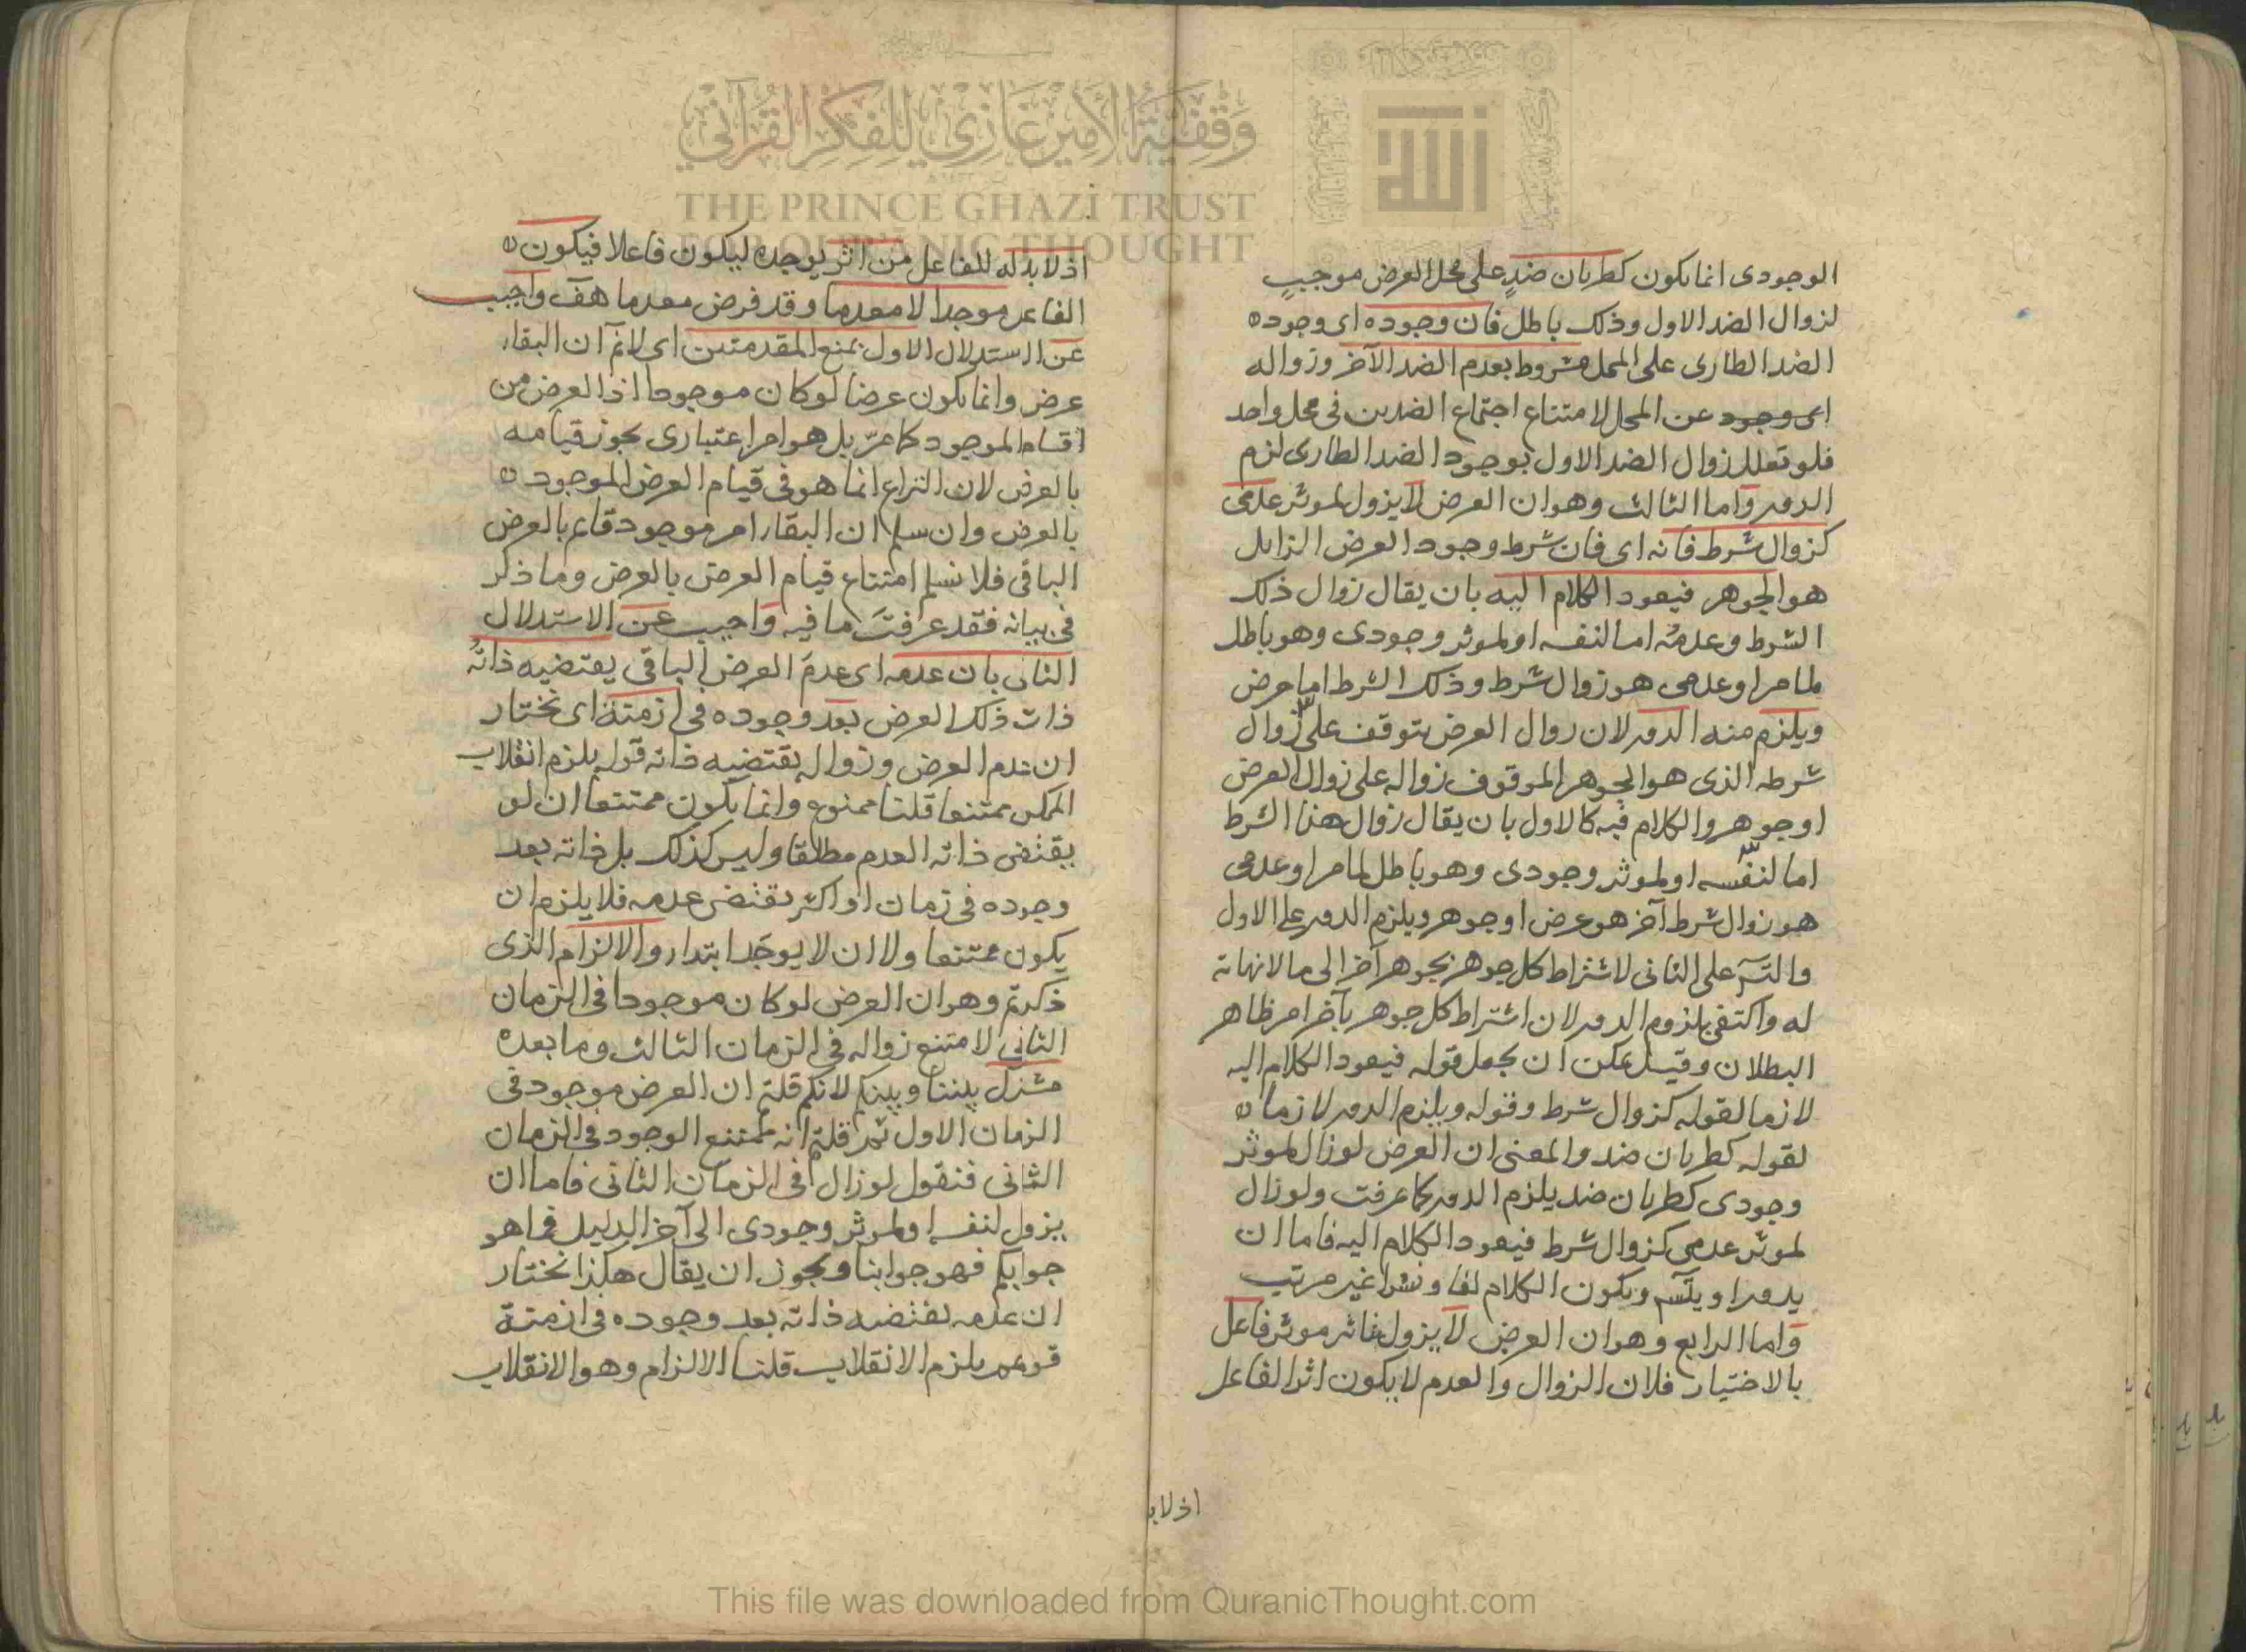 الوجودى انما يكون كطريان ضدٍ على محل العرض موجبٍ
لزوال الضد الاول وذلك باطل فان وجوده اى وجوده
الضد الطارى على المحل مشروط بعدم الضد الآخر وزواله
اى وجود عن المحل لامتناع اجتماع الضدين فى محل واحد
فلو تعلل زوال الضد الاول بوجود الضد الطارى لزم
الدور واما الثالث وهو ان العرض لا يزول لموثر عدمى
كزوال شرط فانه اى فان شرط وجود العرض الزايل
هو الجوهر فيعود الكلام اليه بان يقال زوال ذلك
الشرط وعدمُه اما لنفسه او لموثر وجودى وهو باطل
لما مر او عدمى هو زوال شرط وذلك الشرط اما عرض
ويلزم منه الدور لان زوال العرض يتوقف على زوال
شرطه الذى هو الجوهر الموقوف زواله على زوال العرض
او جوهر والكلام فيه كالاول بان يقال زوال هذا الشرط
اما لنفسه او لموثر وجودى وهو باطل لما مر او عدمى
هو زوال شرط آخر هو عرض او جوهر ويلزم الدور على الاول
والتسَ على الثانى لاشتراط كل جوهر بجوهر آخر الى ما لا نهاية
له واكتفى بلزوم الدور لان اشتراط كل جوهر بآخر امر ظاهر
البطلان وقيل يمكن ان يجعل قوله فيعود الكلام اليه
لازما لقوله كزوال شرط وقوله ويلزم الدور لازما
لقوله كطريان ضد والمعنى ان العرض لو زال لموثر
وجودى كطريان ضد يلزم الدور كما عرفت ولو زال
لموثر عدمى كزوال شرط فيعود الكلام اليه فاما ان
يدور او يتسَ ويكون الكلام لفا ونشرا غير مرتب
واما الرابع وهو ان العرض لا يزول بتاثير موثر فاعل
بالاختيار فلان الزوال والعدم لا يكون اثر الفاعل
اذ لا بد
اذ لا بد له للفاعل من اثر يوجده ليكون فاعلا فيكون
الفاعل موجدا لا معدما وقد فرض معدما هف واجيب
عن الاستدلال الاول بمنع المقدمتين اى لا نم ان البقاء
عرض وانما يكون عرضا لو كان موجودا اذ العرض من
اقسام الموجود كما مرّ بل هو امر اعتبارى يجوز قيامه
بالعرض لان النزاع انما هو فى قيام العرض الموجود
بالعرض وان سلم ان البقاء امر موجود قايم بالعرض
الباقى فلا نسلم امتناع قيام العرض بالعرض وما ذكر
فى بيانه فقد عرفتَ ما فيه واجيب عن الاستدلال
الثانى بان عدمه اى عدم العرض الباقى يقتضيه ذاتُه
ذات ذلك العرض بعد وجوده فى ازمتة اى نختار
ان عدم العرض وزواله يقتضيه ذاته قوله يلزم انقلاب
الممكن ممتنعا قلنا ممنوع وانما يكون ممتنعا ان لو
يقتضى ذاته العدم مطلقا وليس كذلك بل ذاته بعد
وجوده فى زمان او اكثر يقتضى عدمه فلا يلزم ان
يكون ممتنعا ولا ان لا يوجَد ابتداء والالزام الذى
ذكرتم وهو ان العرض لو كان موجودا فى الزمان
الثانى لامتنع زواله فى الزمان الثالث وما بعده
مشترك بيننا وبينكم لانكم قلتم ان العرض موجود فى
الزمان الاول ثم قلتم انه ممتنع الوجود فى الزمان
الثانى فنقول لو زال فى الزمان الثانى فاما ان
يزول لنفسه او لموثر وجودى الى آخر الدليل فما هو
جوابكم فهو جوابنا ويجوز ان يقال هكذا نختار
ان عدمه يقتضيه ذاته بعد وجوده فى ازمتة
قولهم يلزم الانقلاب قلنا الالزام وهو الانقلاب
وقفية الأمير غازي للفكر القرآني
THE PRINCE GHAZI TRUST
FOR QUR'ANIC THOUGHT
الله
This file was downloaded from QuranicThought.com